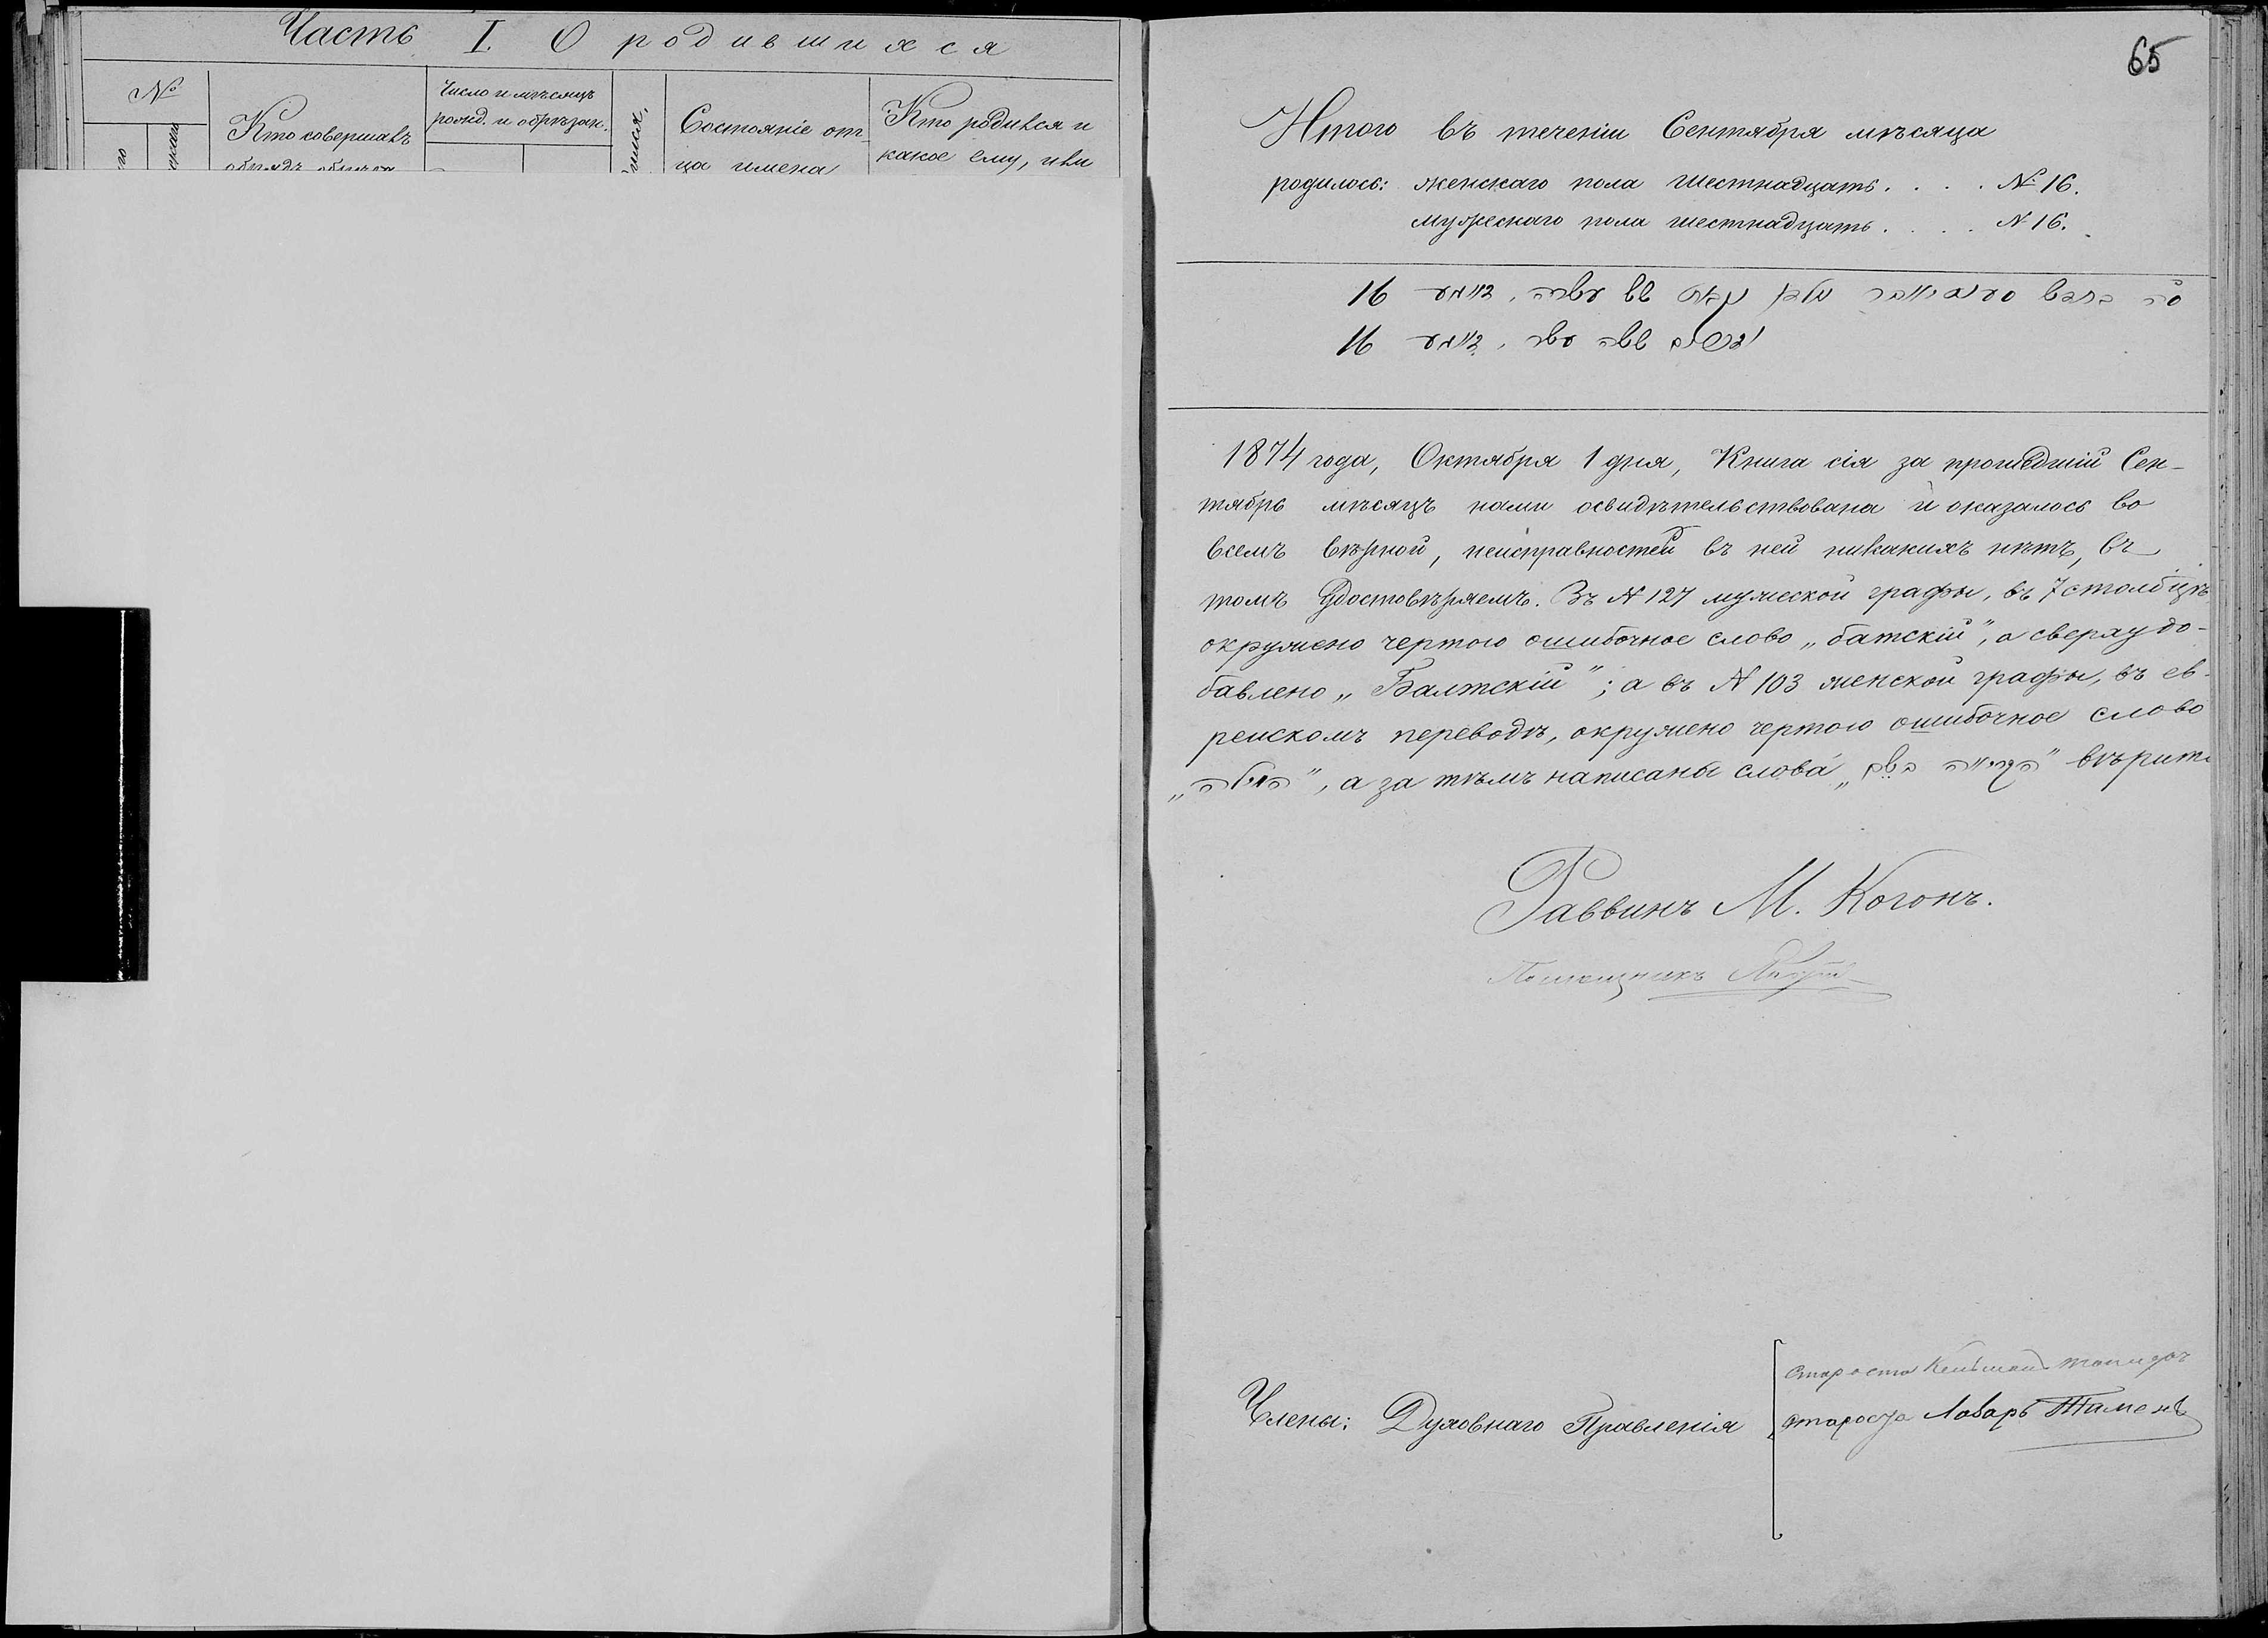 Часть I. О родившихся
№
Кто совершалъ
Число и мѣсяцъ
рожд. и обрѣзан.
Состояніе от-
ца имена
Кто родился и
какое ему, или
65
Итого въ теченіи Сентября мѣсяца
родилось: женскаго пола шестнадцать . . . . № 16.
мужескаго пола шестнадцать . . . . № 16.
16
16
1874 года, Октября 1 дня, Книга сія за прошедшій Сен-
тябрь мѣсяцъ нами освидѣтельствована и оказалось во
всемъ вѣрной, неисправностей въ ней никакихъ нѣтъ, въ
томъ удостовѣряемъ. Въ № 127 мужеской графы, въ 7 столбцѣ
окружено чертою ошибочное слово „батскій", а сверху до-
бавлено „Балтскій"; а въ № 103 женской графы, въ ев-
рейскомъ переводѣ, окружено чертою ошибочное слово
", а за тѣмъ написаны слова „ " вѣрить
Раввинъ М. Когонъ.
Помощникъ
староста
Члены: Духовнаго Правленія
староста Лазарь